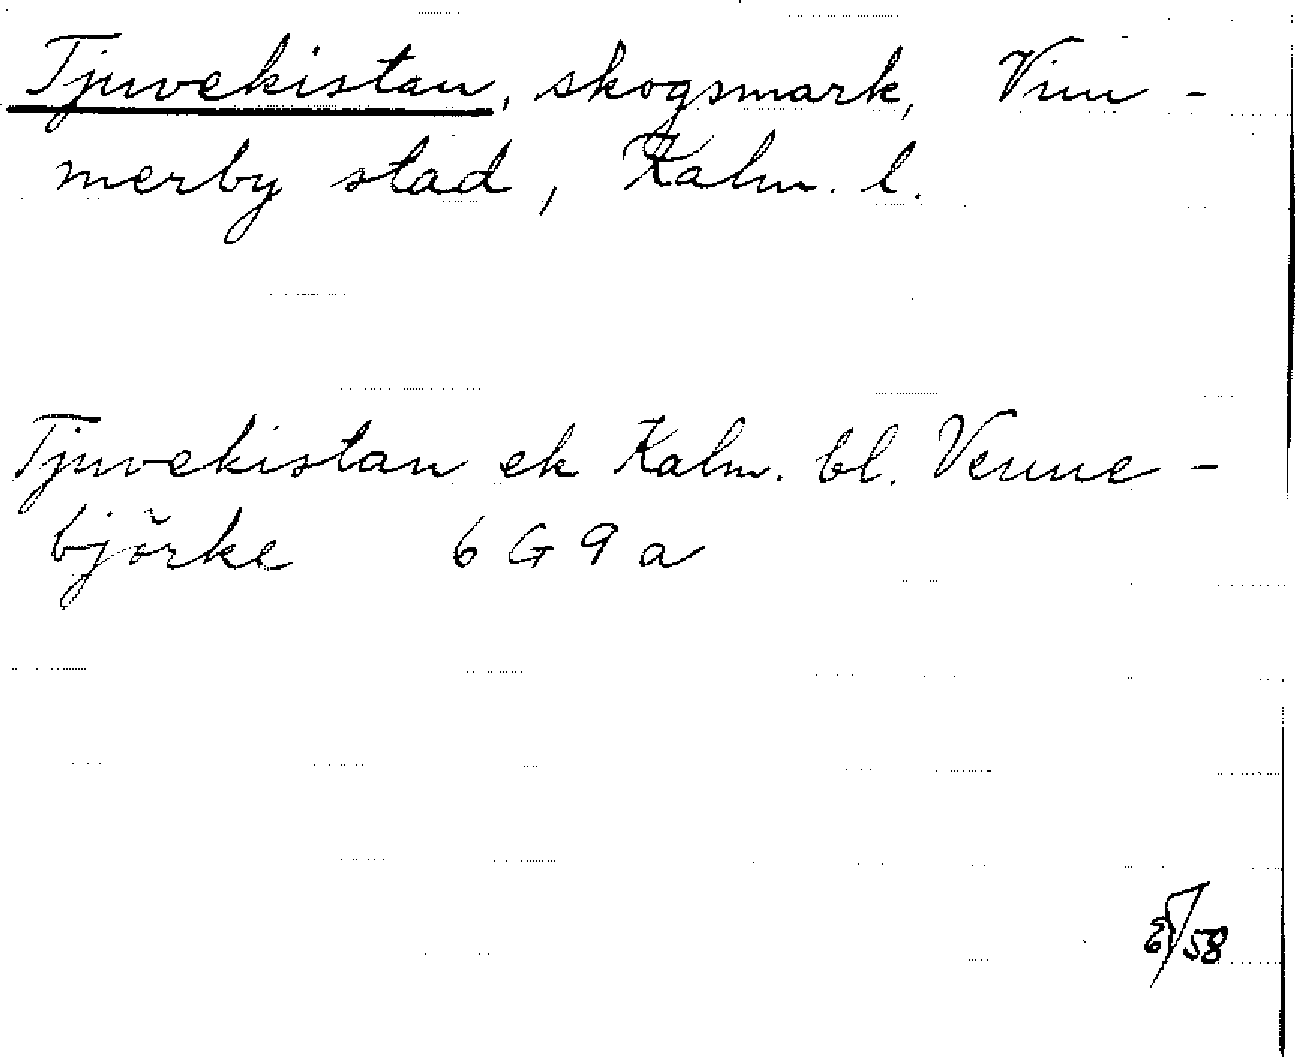 Tjuvekistan, skogsmark, Vim-
merby stad, Kalm. l.
Tjuvekistan ek Kalm. bl. Venne-
björke 6 G 9 a
58